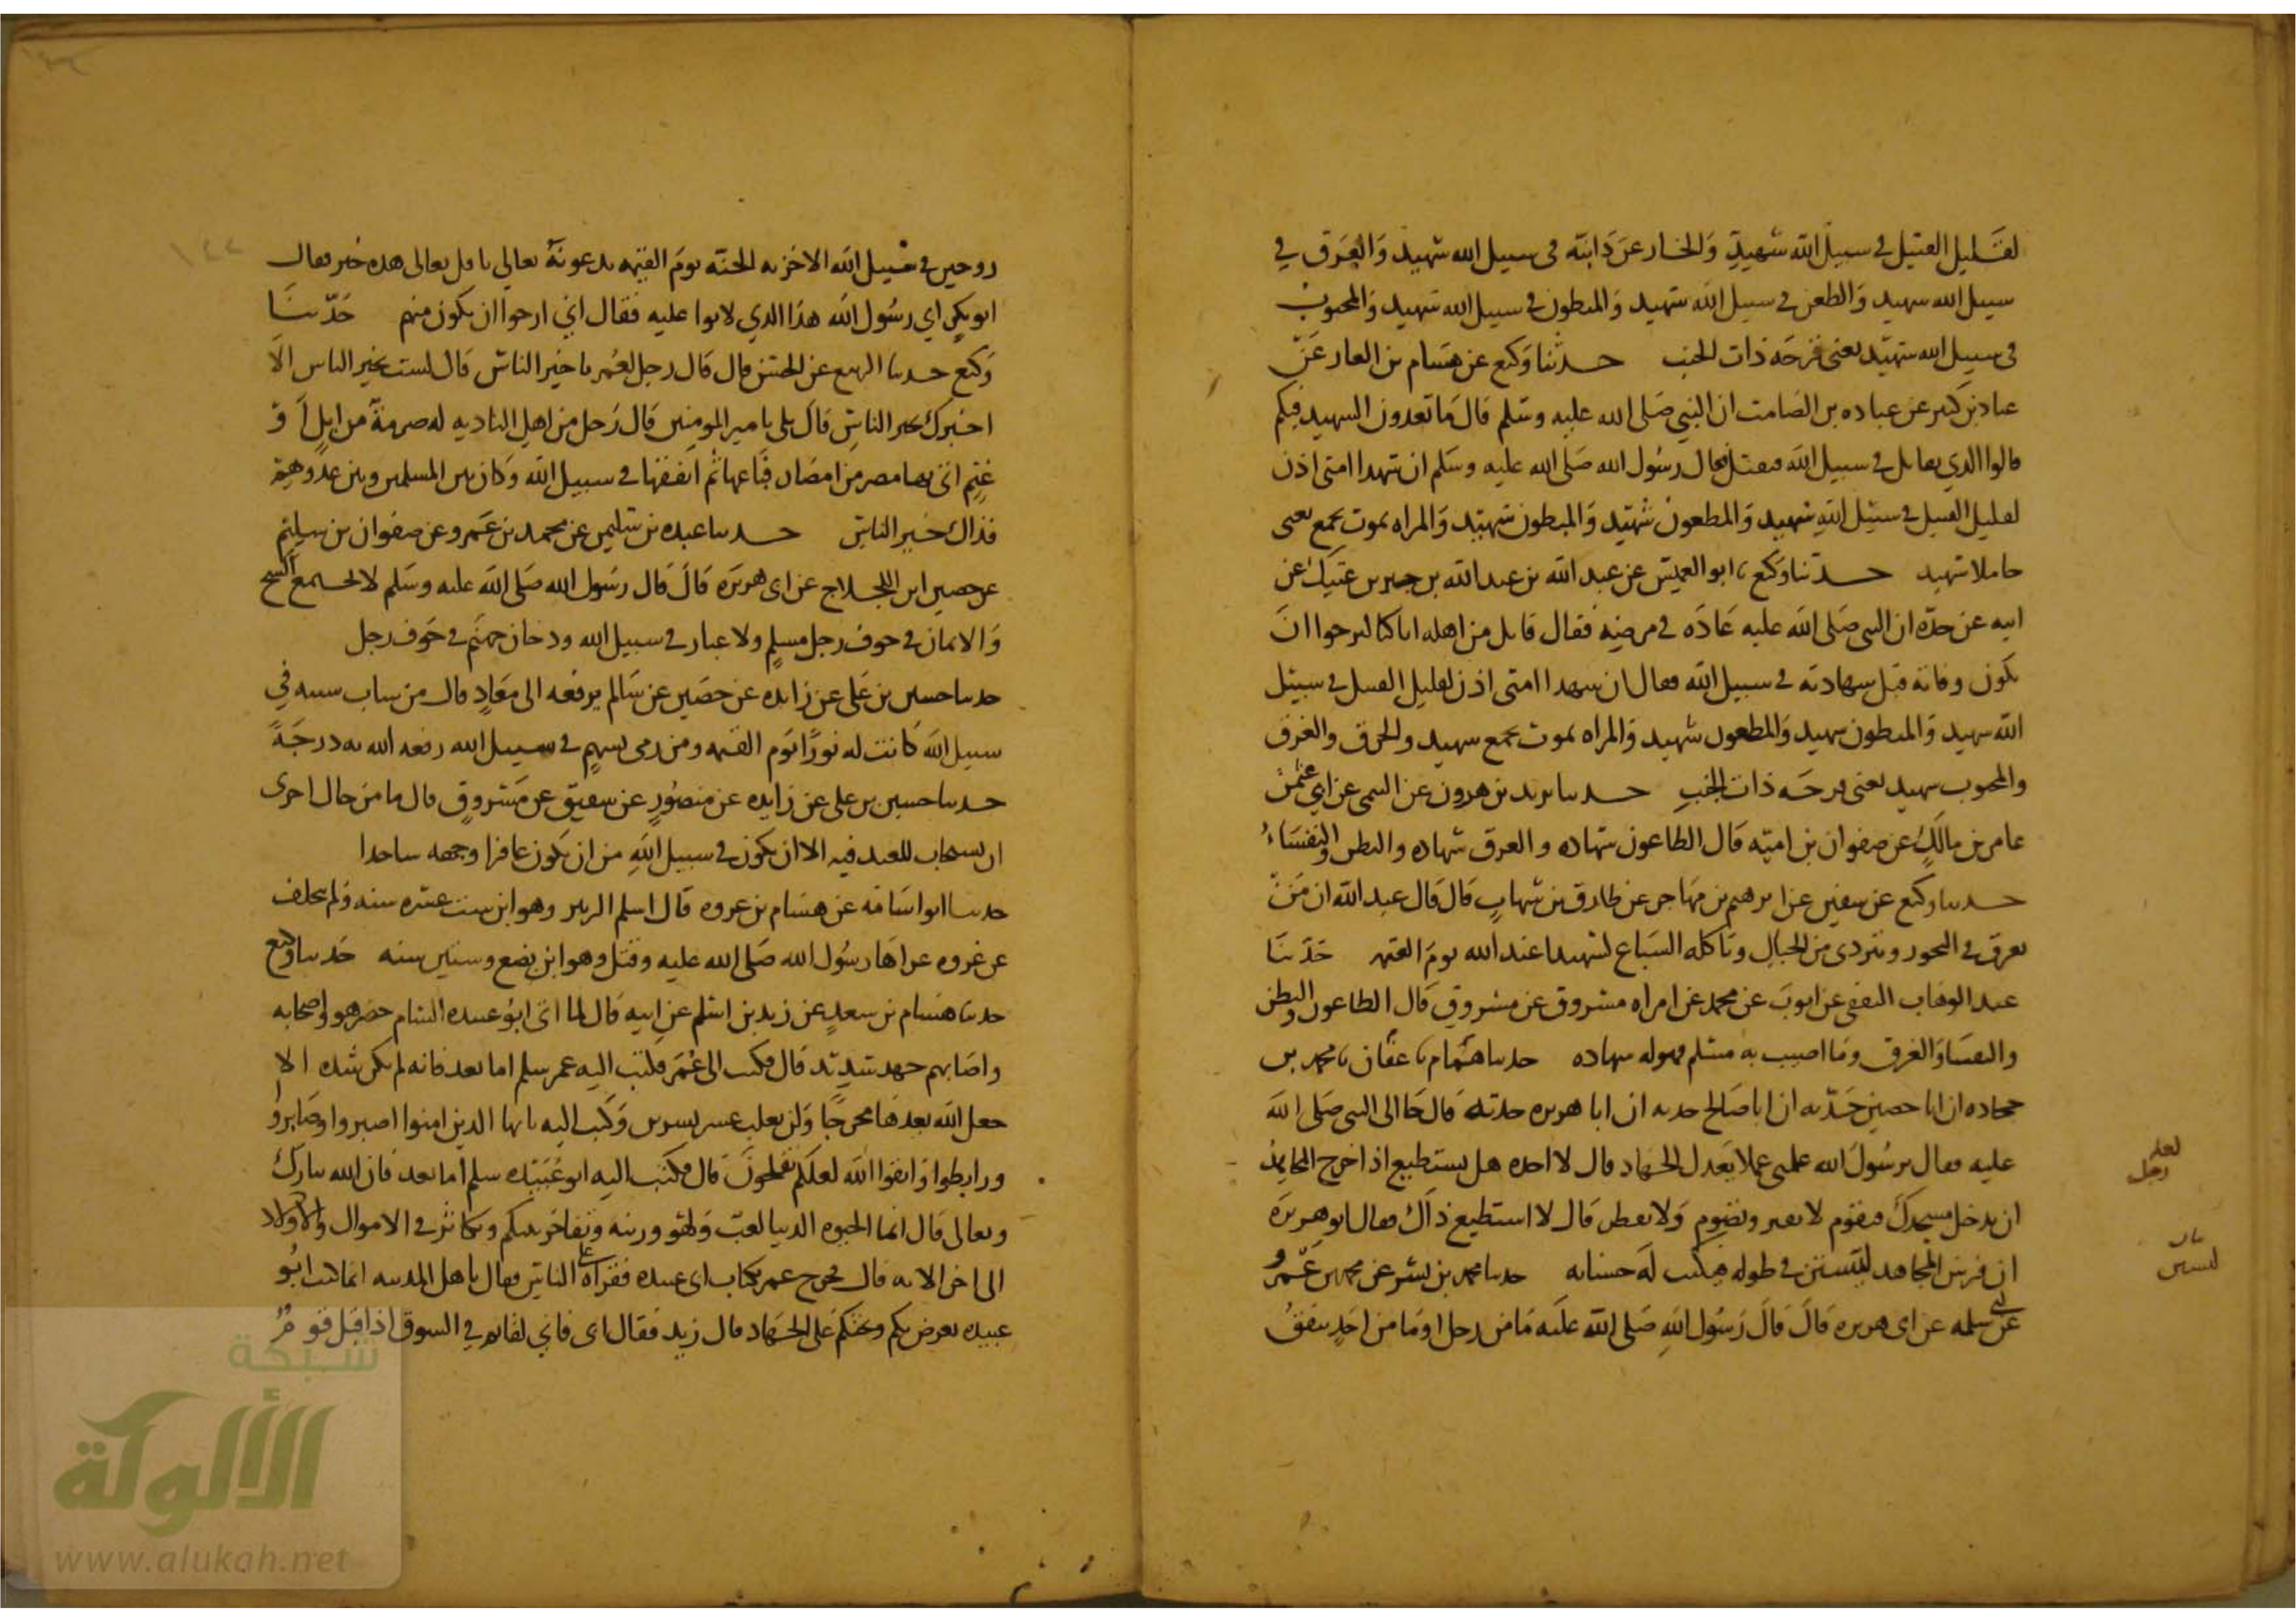 لقليل القتيل في سبيل الله شهيد والخار عن دابته في سبيل الله شهيد والغرق في
سبيل الله شهيد والطعن في سبيل الله شهيد والمبطون في سبيل الله شهيد والمجنوب
في سبيل الله شهيد يعني قرحة ذات الجنب حدثنا وكيع عن هشام بن الغار عن
عباد بن كثير عن عباده بن الصامت ان النبي صلى الله عليه وسلم قال ما تعدون الشهيد فيكم
قالوا الذي يقاتل في سبيل الله فيقتل فقال رسول الله صلى الله عليه وسلم ان شهدا امتى اذن
لقليل القتيل في سبيل الله شهيد والمطعون شهيد والمبطون شهيد والمراه تموت بجمع يعنى
حاملا شهيد حدثنا وكيع نا ابو العميس عن عبد الله بن عبد الله بن جبير بن عتيك عن
ابيه عن جده ان النبى صلى الله عليه عاده في مرضه فقال قايل من اهله انا كنا لنرجوا ان
تكون وفاته قتل شهادته في سبيل الله فقال ان شهدا امتى اذن لقليل القتيل في سبيل
الله شهيد والمبطون شهيد والمطعون شهيد والمراه تموت بجمع شهيد والحرق والغرق
والمجنوب شهيد يعنى قرحه ذات الجنب حدثنا يزيد بن هرون عن التيمى عن ابي عثمن
عامر بن مالك عن صفوان بن اميه قال الطاعون شهاده والغرق شهاده والبطن والنفساء
حدثنا وكيع عن سفين عن ابرهيم بن مهاجر عن طارق بن شهاب قال قال عبد الله ان من
يغرق في البحور ويتردى من الجبال وتاكله السباع لشهيدا عند الله يوم القيمه حدثنا
عبد الوهاب الثقفى عن ايوب عن محمد عن امراه مسروق عن مسروق قال الطاعون والبطن
والنفسا والغرق وما اصيب به مسلم فهو له شهاده حدثنا همام نا عفان نا محمد بن
جحاده ان ابا حصين حدثه ان ابا صالح حدثه ان ابا هريره حدثه قال جا الى النبى صلى الله
عليه فقال يرسول الله علمنى عملا يعدل الجهاد قال لا اجده هل يستطيع اذا خرج المجاهد
ان يدخل مسجدك فيقوم لا يفتر ويصوم ولا يفطر قال لا استطيع ذاك فقال ابو هريرة
ان فرس المجاهد ليستن في طوله فيكتب له حسناته حدثنا محمد بن بشر عن محمد بن عمرو
عن ابي سلمه عن ابى هريره قال قال رسول الله صلى الله عليه ما من رجل او ما من احد ينفق
لعله
رجل
زوجين في سبيل الله الا خزنه الجنه يوم القيمه يدعونه تعالى يا فل تعالى هذه خير فقال
ابو بكر اي رسول الله هذا الذي لا توا عليه فقال اني ارجوا ان تكون منهم حدثنا
وكيع حدثنا الربيع عن الحسن قال قال رجل لعمر يا خير الناس قال لست بخير الناس الا
اخبرك بخير الناس قال بلى يا مير المومنين قال رجل من اهل الباديه له صرمة من ابل او
غنم اتى بها مصر من امصار فباعها ثم انفقها في سبيل الله وكان بين المسلمين وبين عدوهم
فذاك خير الناس حدثنا عبده بن سليمن عن محمد بن عمرو عن صفوان بن سليم
عن حصين ابن اللجلاج عن ابى هريره قال قال رسول الله صلى الله عليه وسلم لا يجتمع الشح
والايمان في جوف رجل مسلم ولا غبار في سبيل الله ودخان جهنم في جوف رجل
حدثنا حسين بن على عن زايده عن حصين عن سالم يرفعه الى معاذ قال من شاب شيبه في
سبيل الله كانت له نورا يوم القيمه ومن رمى بسهم في سبيل الله رفعه الله به درجة
حدثنا حسين بن على عن زايده عن منصور عن شقيق عن مسروق قال ما من حال احرى
ان يستجاب للعبد فيه الا ان يكون في سبيل الله من ان يكون عافرا وجهه ساجدا
حدثنا ابو اسامة عن هشام بن عروه قال اسلم الزبير وهو ابن ست عشره سنه ولم يتخلف
عن غزوه غزاها رسول الله صلى الله عليه وقتل وهو ابن بضع وستين سنه حدثنا وكيع
حدثنا هشام بن سعد عن زيد بن اسلم عن ابيه قال لما اتى ابو عبيده الشام حضر هو واصحابه
واصابهم جهد شديد قال فكتب الى عمر فكتب اليه عمر سلم اما بعد فانه لم تكن شده الا
جعل الله بعدها مخرجا ولن يغلب عسر يسرين وكتب اليه يا ايها الذين امنوا اصبروا وصابروا
ورابطوا واتقوا الله لعلكم تفلحون قال فكتب اليه ابو عبيده سلم اما بعد فان الله تبارك
وتعالى قال انما الحيوه الدنيا لعب ولهو وزينه وتفاخر بينكم وتكاثر في الاموال والاولاد
الى اخر الايه قال فخرج عمر بكتاب ابى عبيده فقراه على الناس فقال ياهل المدينه انما كتب ابو
عبيده يعرض بكم ويحثكم على الجهاد قال زيد فقال ابى فاني لقايم في السوق اذ اقبل قوم
شبكة
الألوكة
www.alukah.net